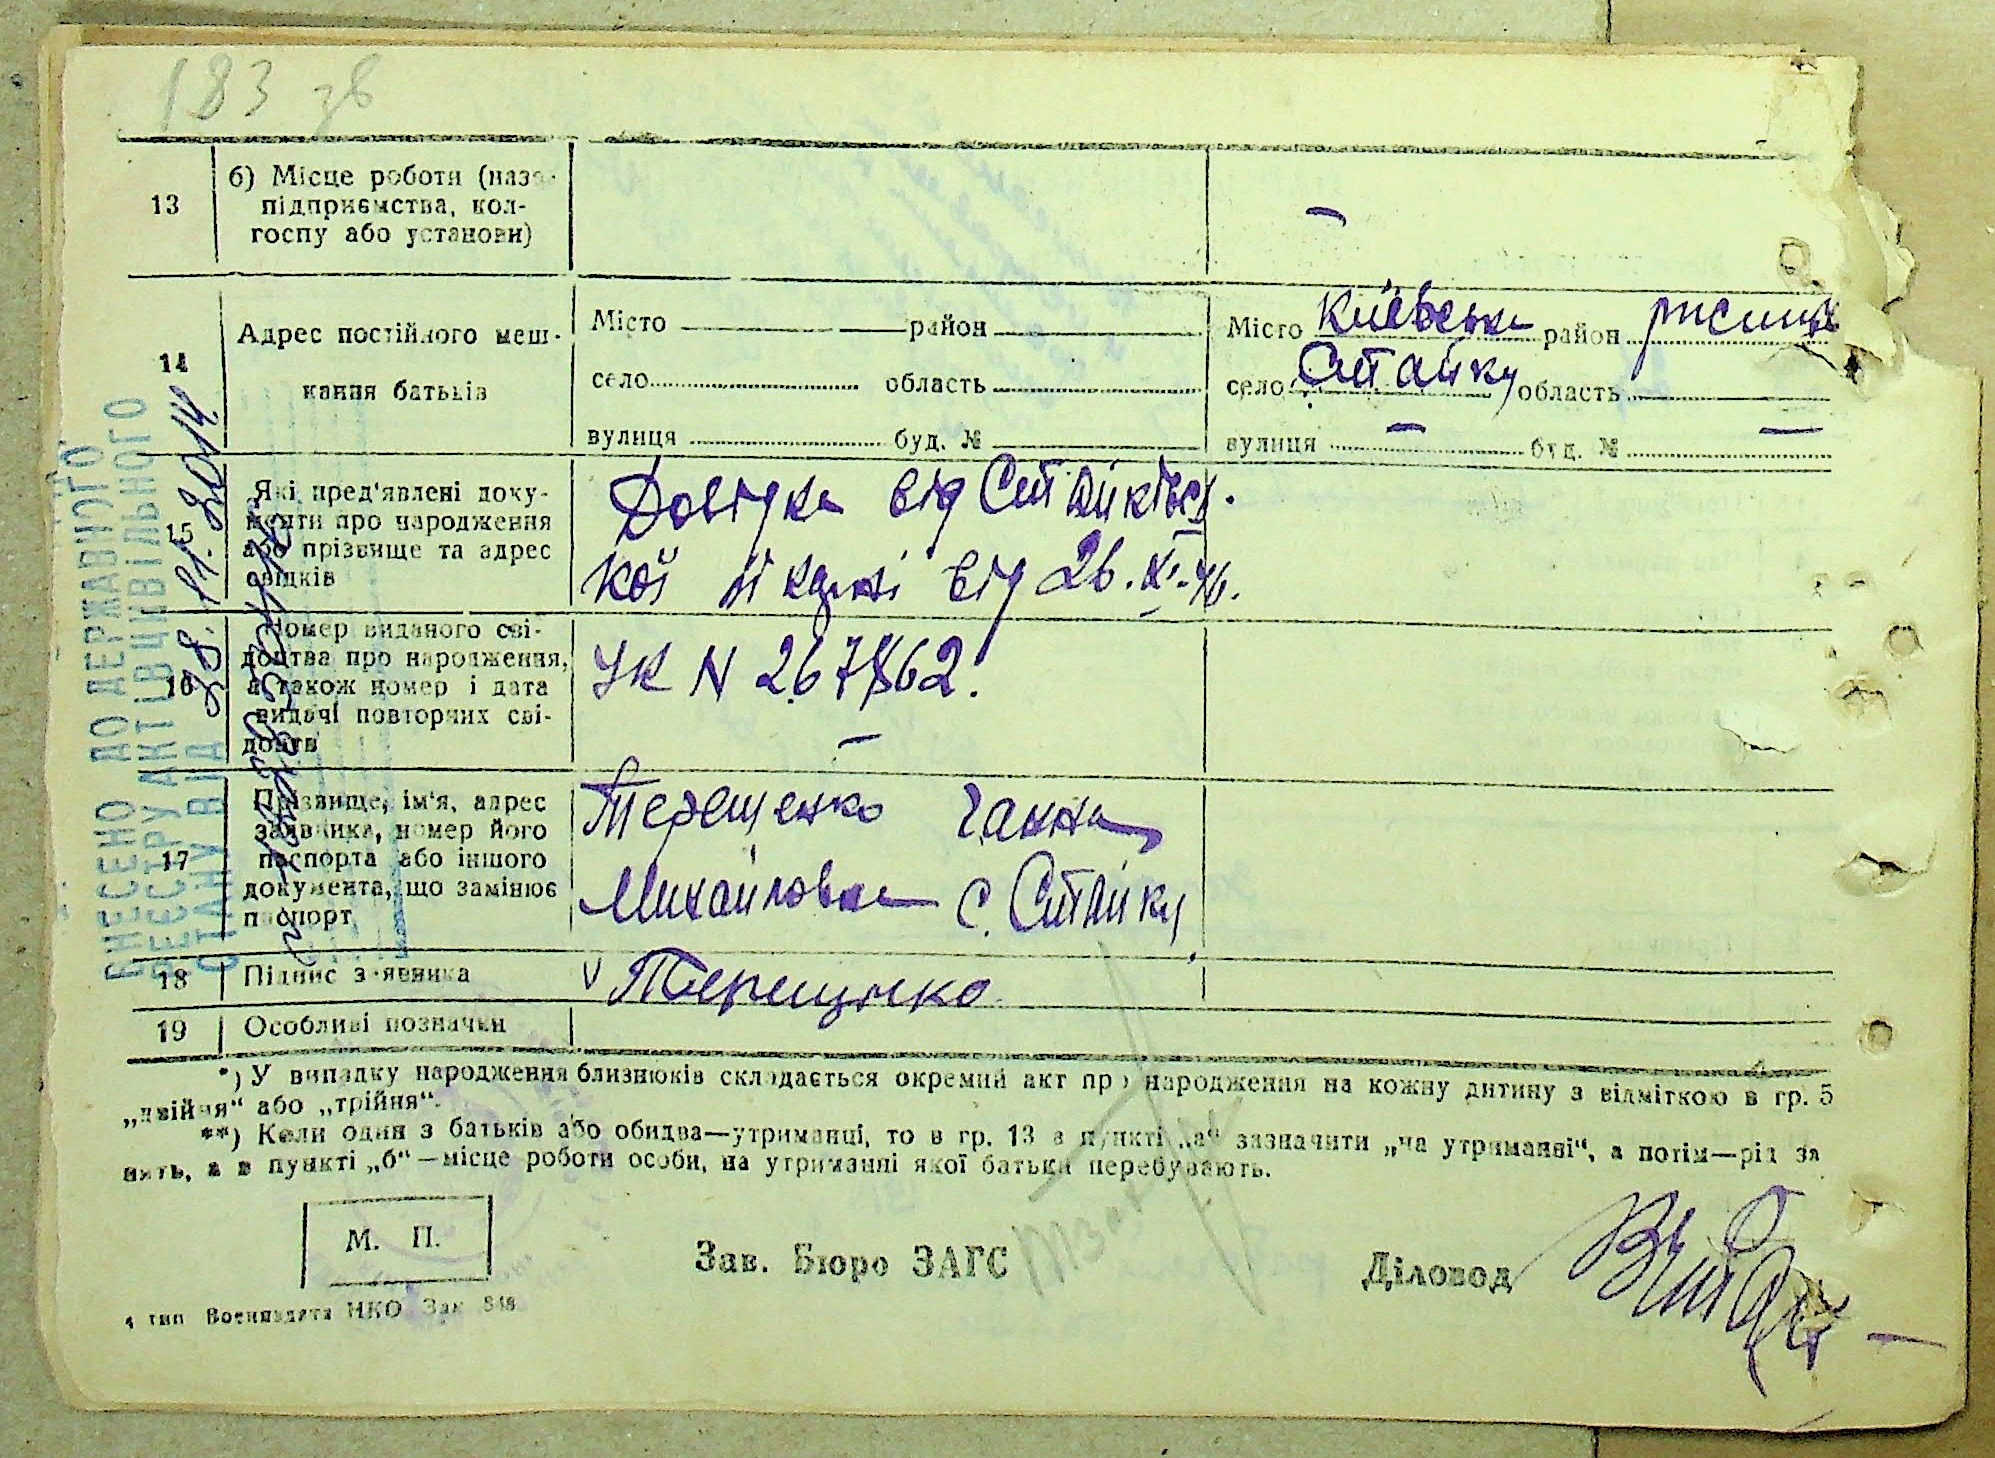 183 зв
13
б) Місце роботи (назва
підприємства, кол-
госпу або установи)
—
14
Адрес постійного меш-
кання батьків
Місто район
село область
вулиця буд. №
Місто Київська район ржищів
село Стайки область
вулиця — буд. № —
15
Які пред'явлені доку-
менти про народження
або прізвище та адрес
свідків
Довідка від Стайківсь
кої від 26.XI.46.
16
Номер виданого сві-
доцтва про народження,
а також номер і дата
видачі повторних сві-
доцтв
УК N 267862.
—
17
Прізвище, ім'я, адрес
заявника, номер його
паспорта або іншого
документа, що замінює
паспорт
Терещенко Ганна
Михайловна с. Стайки
18
Підпис з'явника
V Терещенко
19
Особливі позначки
*) У випадку народження близнюків складається окремий акт про народження на кожну дитину з відміткою в гр. 5
„двійня“ або „трійня“.
**) Коли один з батьків або обидва—утриманці, то в гр. 13 в пункті „а“ зазначити „на утриманні“, а потім—рід за
нять, а в пункті „б“—місце роботи особи, на утриманні якої батьки перебувають.
М. П.
Зав. Бюро ЗАГС
Діловод
4 тип Воениздата НКО Зак 848
ВНЕСЕНО ДО ДЕРЖАВНОГО
РЕЄСТРУ АКТІВ ЦИВІЛЬНОГО
СТАНУ ВІД 28.11.2014